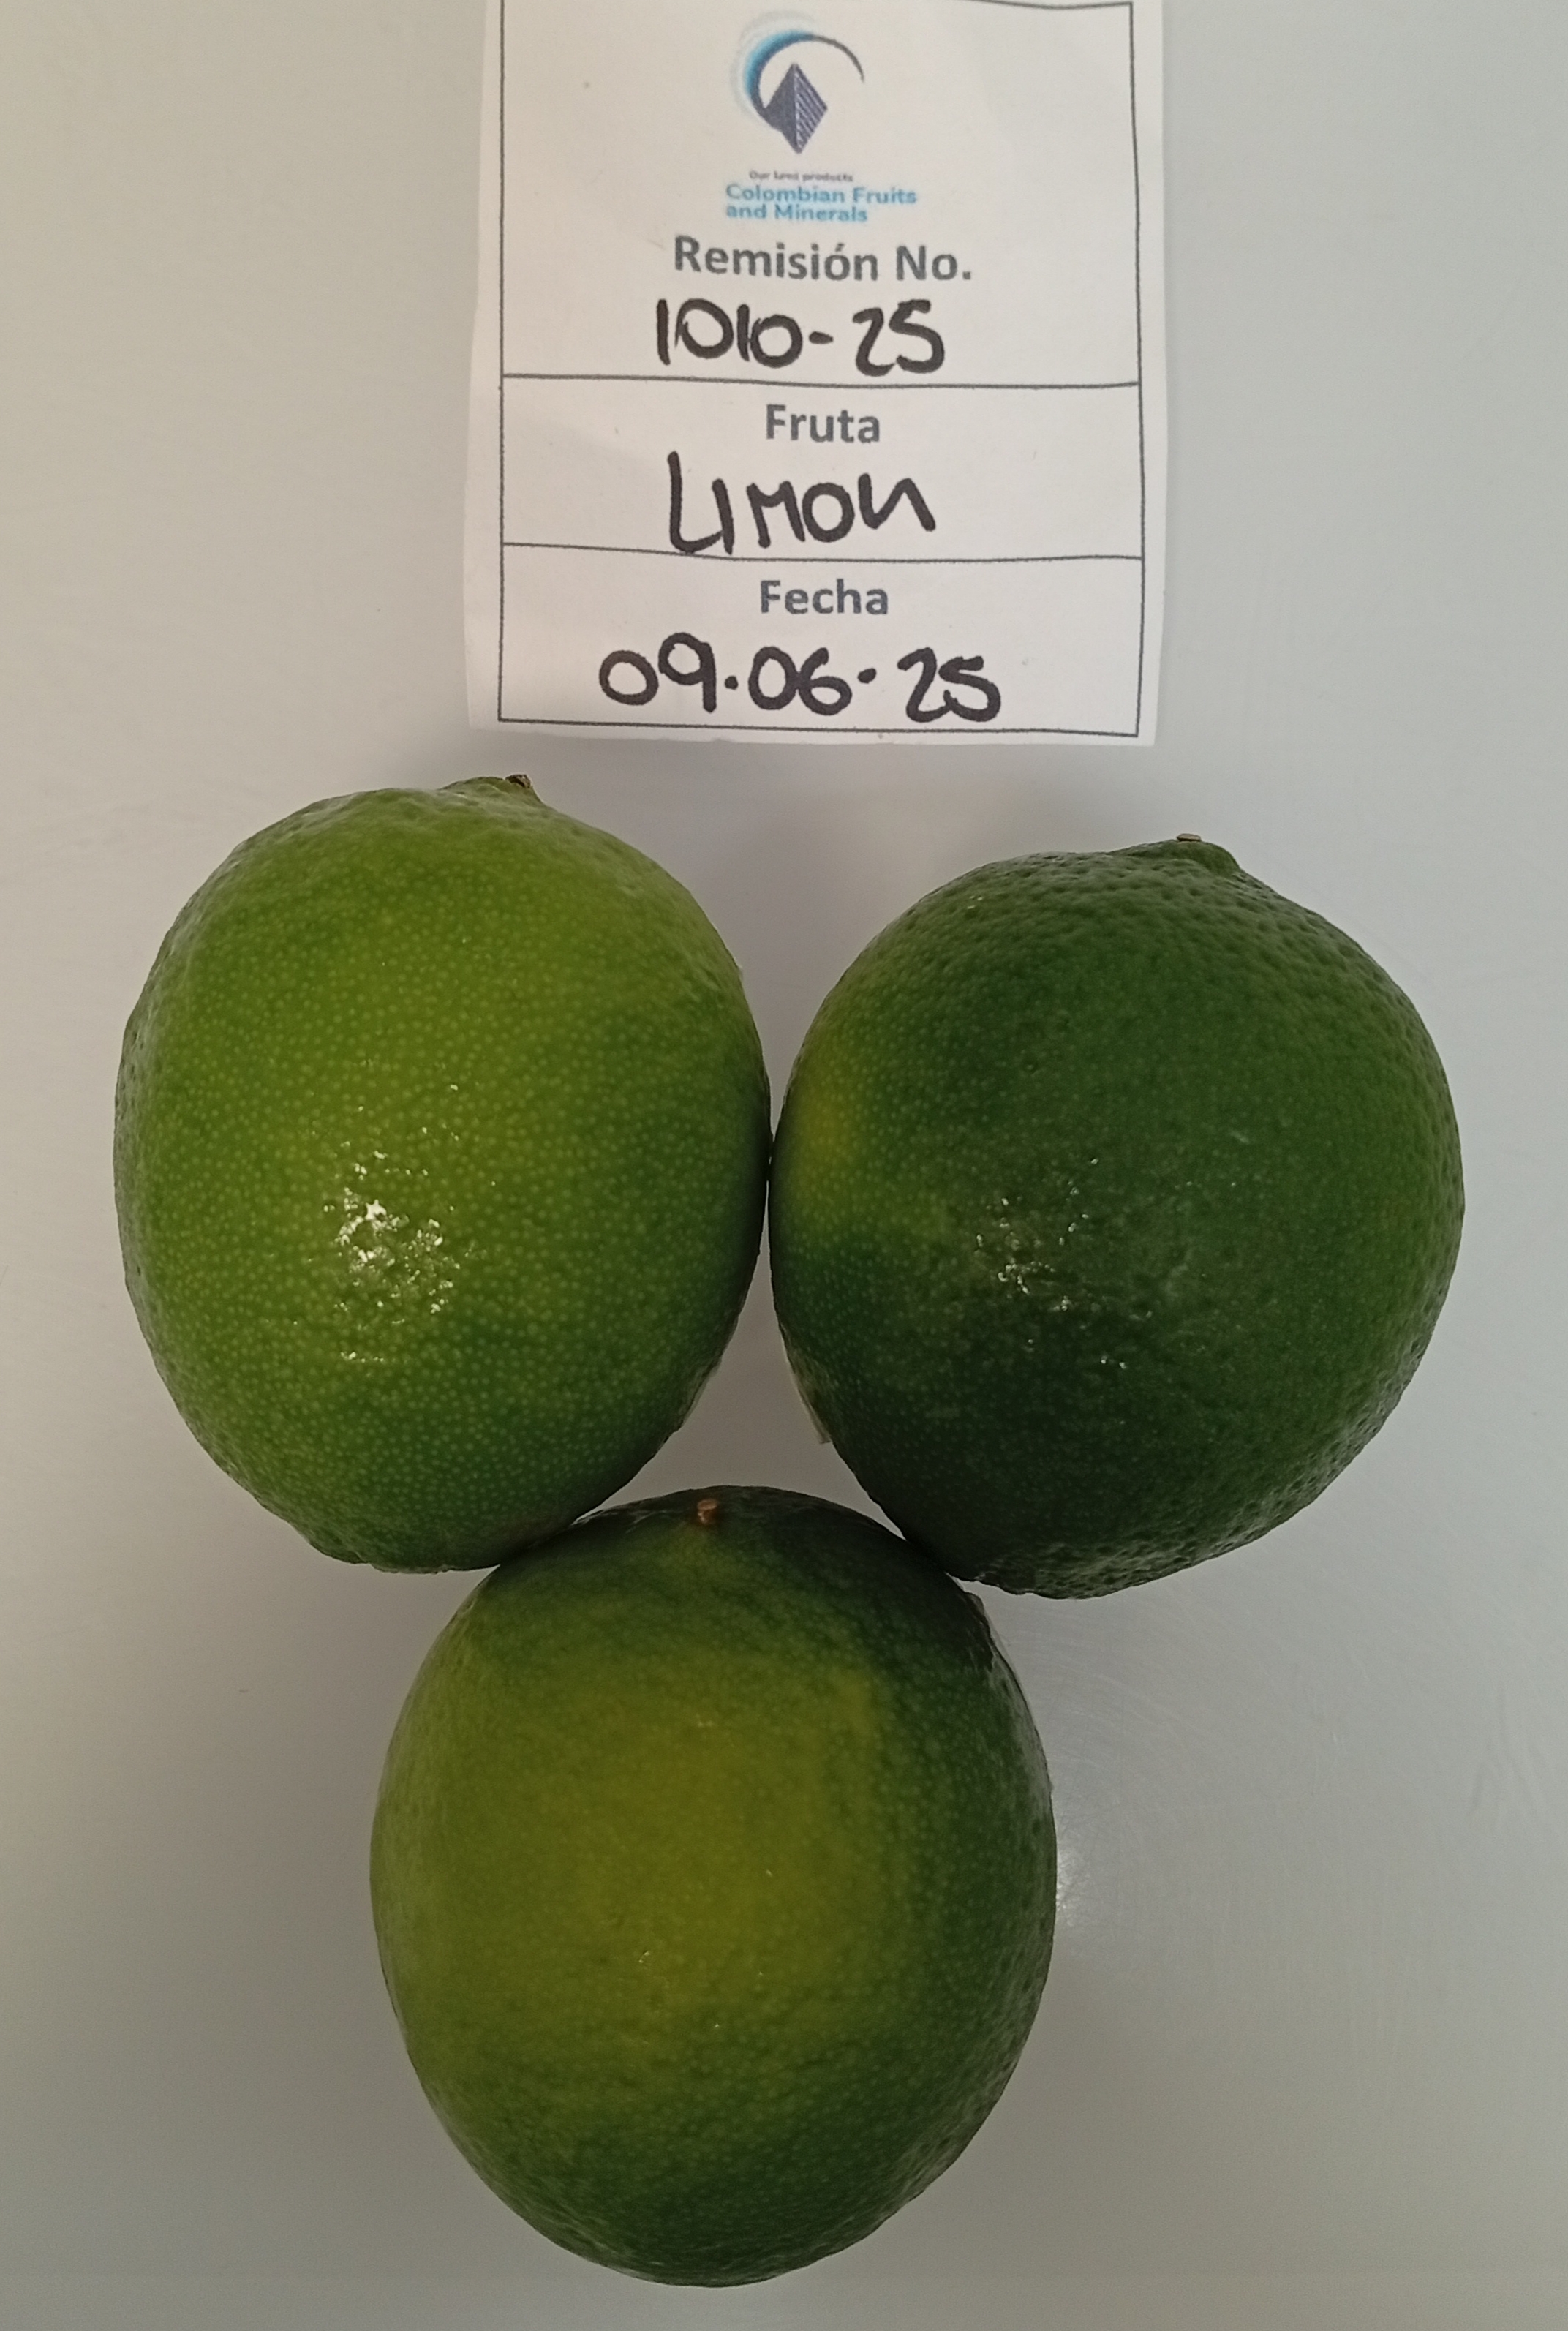 Our land products
Colombian Fruits
and Minerals
Remisión No.
1010-25
Fruta
LIMON
Fecha
09.06.25